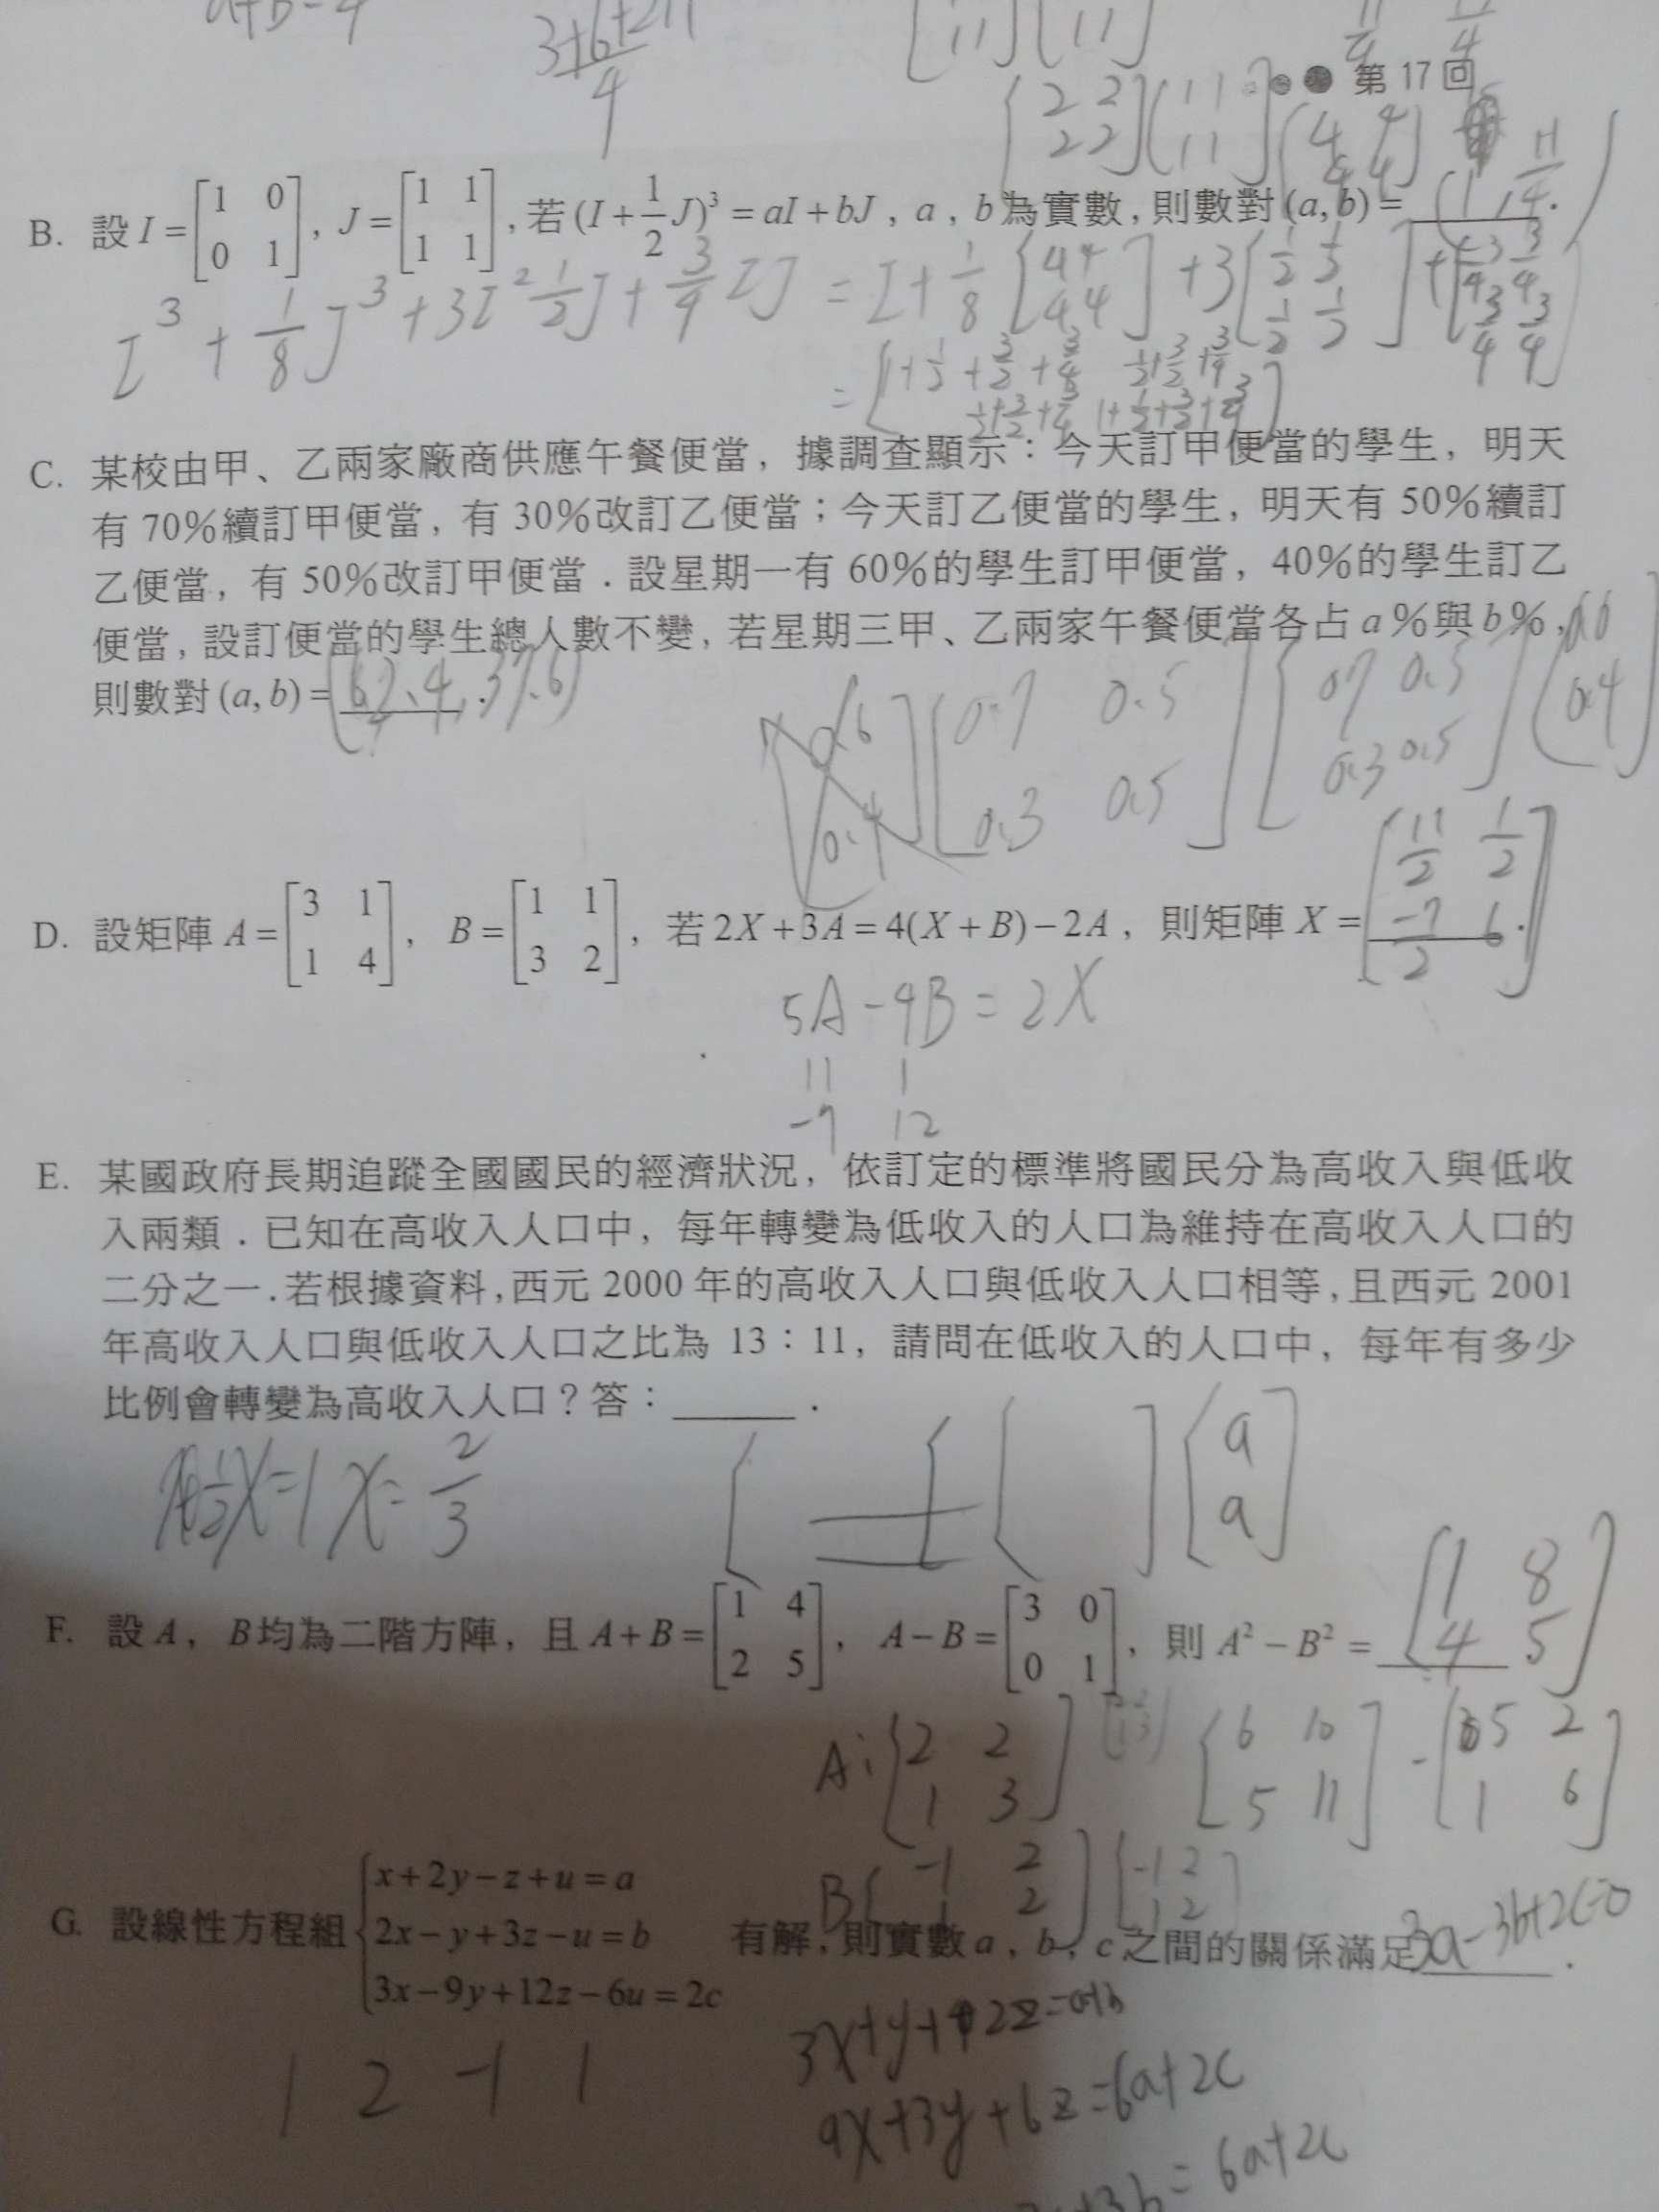 a+b=4
3+6+2
4
11 11
11
4
4
[2 2 2 2][1 1 1 1] [4 4 4 4]
第 17 回
B. 設 I = [1 0 0 1], J = [1 1 1 1], 若 (I + 1/2 J)³ = aI + bJ, a, b 為實數, 則數對 (a, b) = (1, 11/4).
I³ + 1/8 J³ + 3I² 1/2 J + 3/4 IJ = I + 1/8 [4 4 4 4] + 3[1/2 1/2 1/2 1/2] + [3/4 3/4 3/4 3/4]
= [1+1/2+3/2+3/4 1/2+3/2+3/4 1/2+3/2+3/4 1+1/2+3/2+3/4]
C. 某校由甲、乙兩家廠商供應午餐便當, 據調查顯示：今天訂甲便當的學生, 明天
有 70%續訂甲便當, 有 30%改訂乙便當；今天訂乙便當的學生, 明天有 50%續訂
乙便當, 有 50%改訂甲便當．設星期一有 60%的學生訂甲便當, 40%的學生訂乙
便當, 設訂便當的學生總人數不變, 若星期三甲、乙兩家午餐便當各占 a %與 b %,
則數對 (a, b) = (62.4, 37.6).
[0.6 0.4] [0.7 0.5 0.3 0.5] [0.7 0.5 0.3 0.5] [0.6 0.4]
D. 設矩陣 A = [3 1 1 4], B = [1 1 3 2], 若 2X + 3A = 4(X + B) − 2A, 則矩陣 X = [11/2 1/2 -7/2 6].
5A − 4B = 2X
11 1
-7 12
E. 某國政府長期追蹤全國國民的經濟狀況, 依訂定的標準將國民分為高收入與低收
入兩類．已知在高收入人口中, 每年轉變為低收入的人口為維持在高收入人口的
二分之一．若根據資料, 西元 2000 年的高收入人口與低收入人口相等, 且西元 2001
年高收入人口與低收入人口之比為 13：11, 請問在低收入的人口中, 每年有多少
比例會轉變為高收入人口？答：______．
x+1/2x=1 x=2/3
[a a]
F. 設 A, B 均為二階方陣, 且 A + B = [1 4 2 5], A − B = [3 0 0 1], 則 A² − B² = [1 8 4 5]
A: [2 2 1 3] [2 2 1 3] [6 10 5 11] - [5 2 1 6]
B [-1 2 1 2] [-1 2 1 2]
G. 設線性方程組 { x + 2y − z + u = a
2x − y + 3z − u = b
3x − 9y + 12z − 6u = 2c
有解, 則實數 a, b, c 之間的關係滿足 3a-3b+2c=0．
1 2 -1 1
3x+y+2z=a+b
9x+3y+6z=6a+2c
+3b=6a+2c